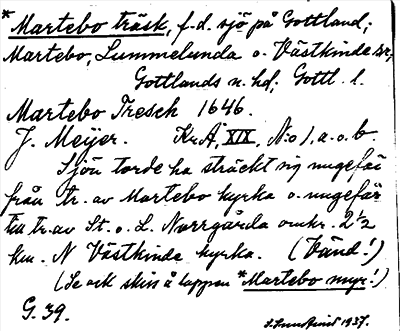 *Martebo träsk, f.d. sjö på Gottland;
Martebo, Lummelunda o. Västkinde snr,
Gottlands n. hd; Gottl. l.
Martebo Tresch 1646.
J. Meijer. Kr.A, XIX, N:o 1, a. o. b.
Sjön torde ha sträckt sig ungefär
från tr. av Martebo kyrka o. ungefär
till tr. av St. o. L. Norrgårda omkr. 2 1/2
km. N Västkinde kyrka. (Vänd!)
(Se ock skiss å lappen *Martebo myr!)
G. 39.
1937.